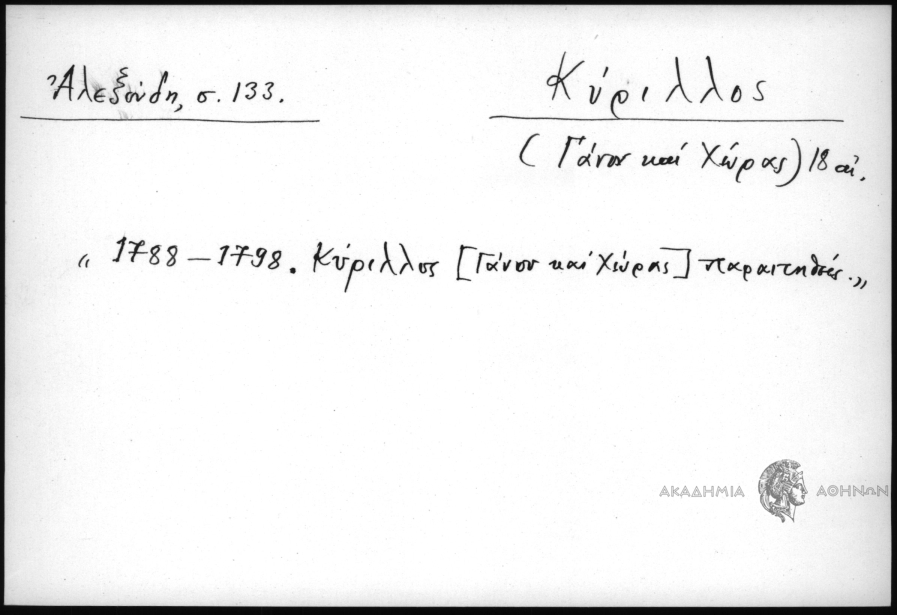 Ἀλεξούδη, σ. 133.
Κύριλλος
(Γάνου καί Χώρας) 18 αἰ.
„ 1788 – 1798. Κύριλλος [Γάνου καί Χώρας] παραιτηθείς.„
ΑΚΑΔΗΜΙΑ ΑΘΗΝΩΝ